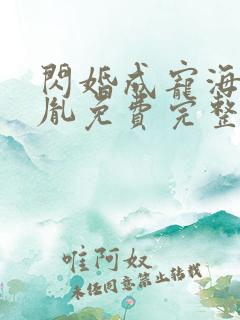 閃婚成寵海
胤免費完整
唯阿奴
未经同意禁止转载